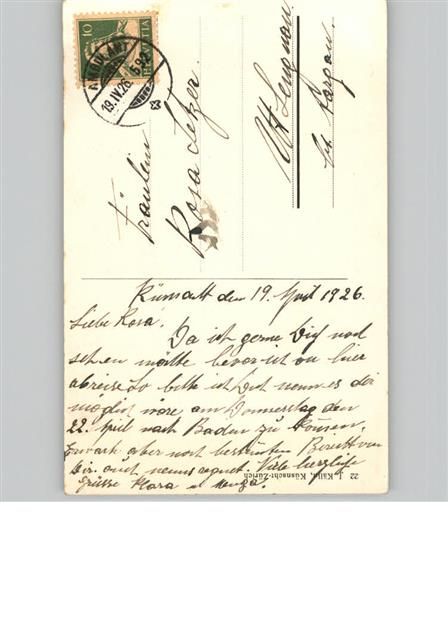 HELVETIA
10
AMBULANT
19.IV.26. 5
Fräulein
Rosa Suter.
Ob Lengnau
Kt. Aargau.
Küsnacht den 19. April 1926.
Liebe Rosa!
Da ich gerne Dich noch
sehen möchte bevor ich von hier
abreise so bitte ich Dich wenn es dir
möglich wäre am Donnerstag den
22. April nach Baden zu kommen.
Erwarte aber noch bestimmten Bericht von
Dir. auch wenns regnet. Viele herzliche
Grüsse Klara
22 J. Källi, Küsnacht-Zürich